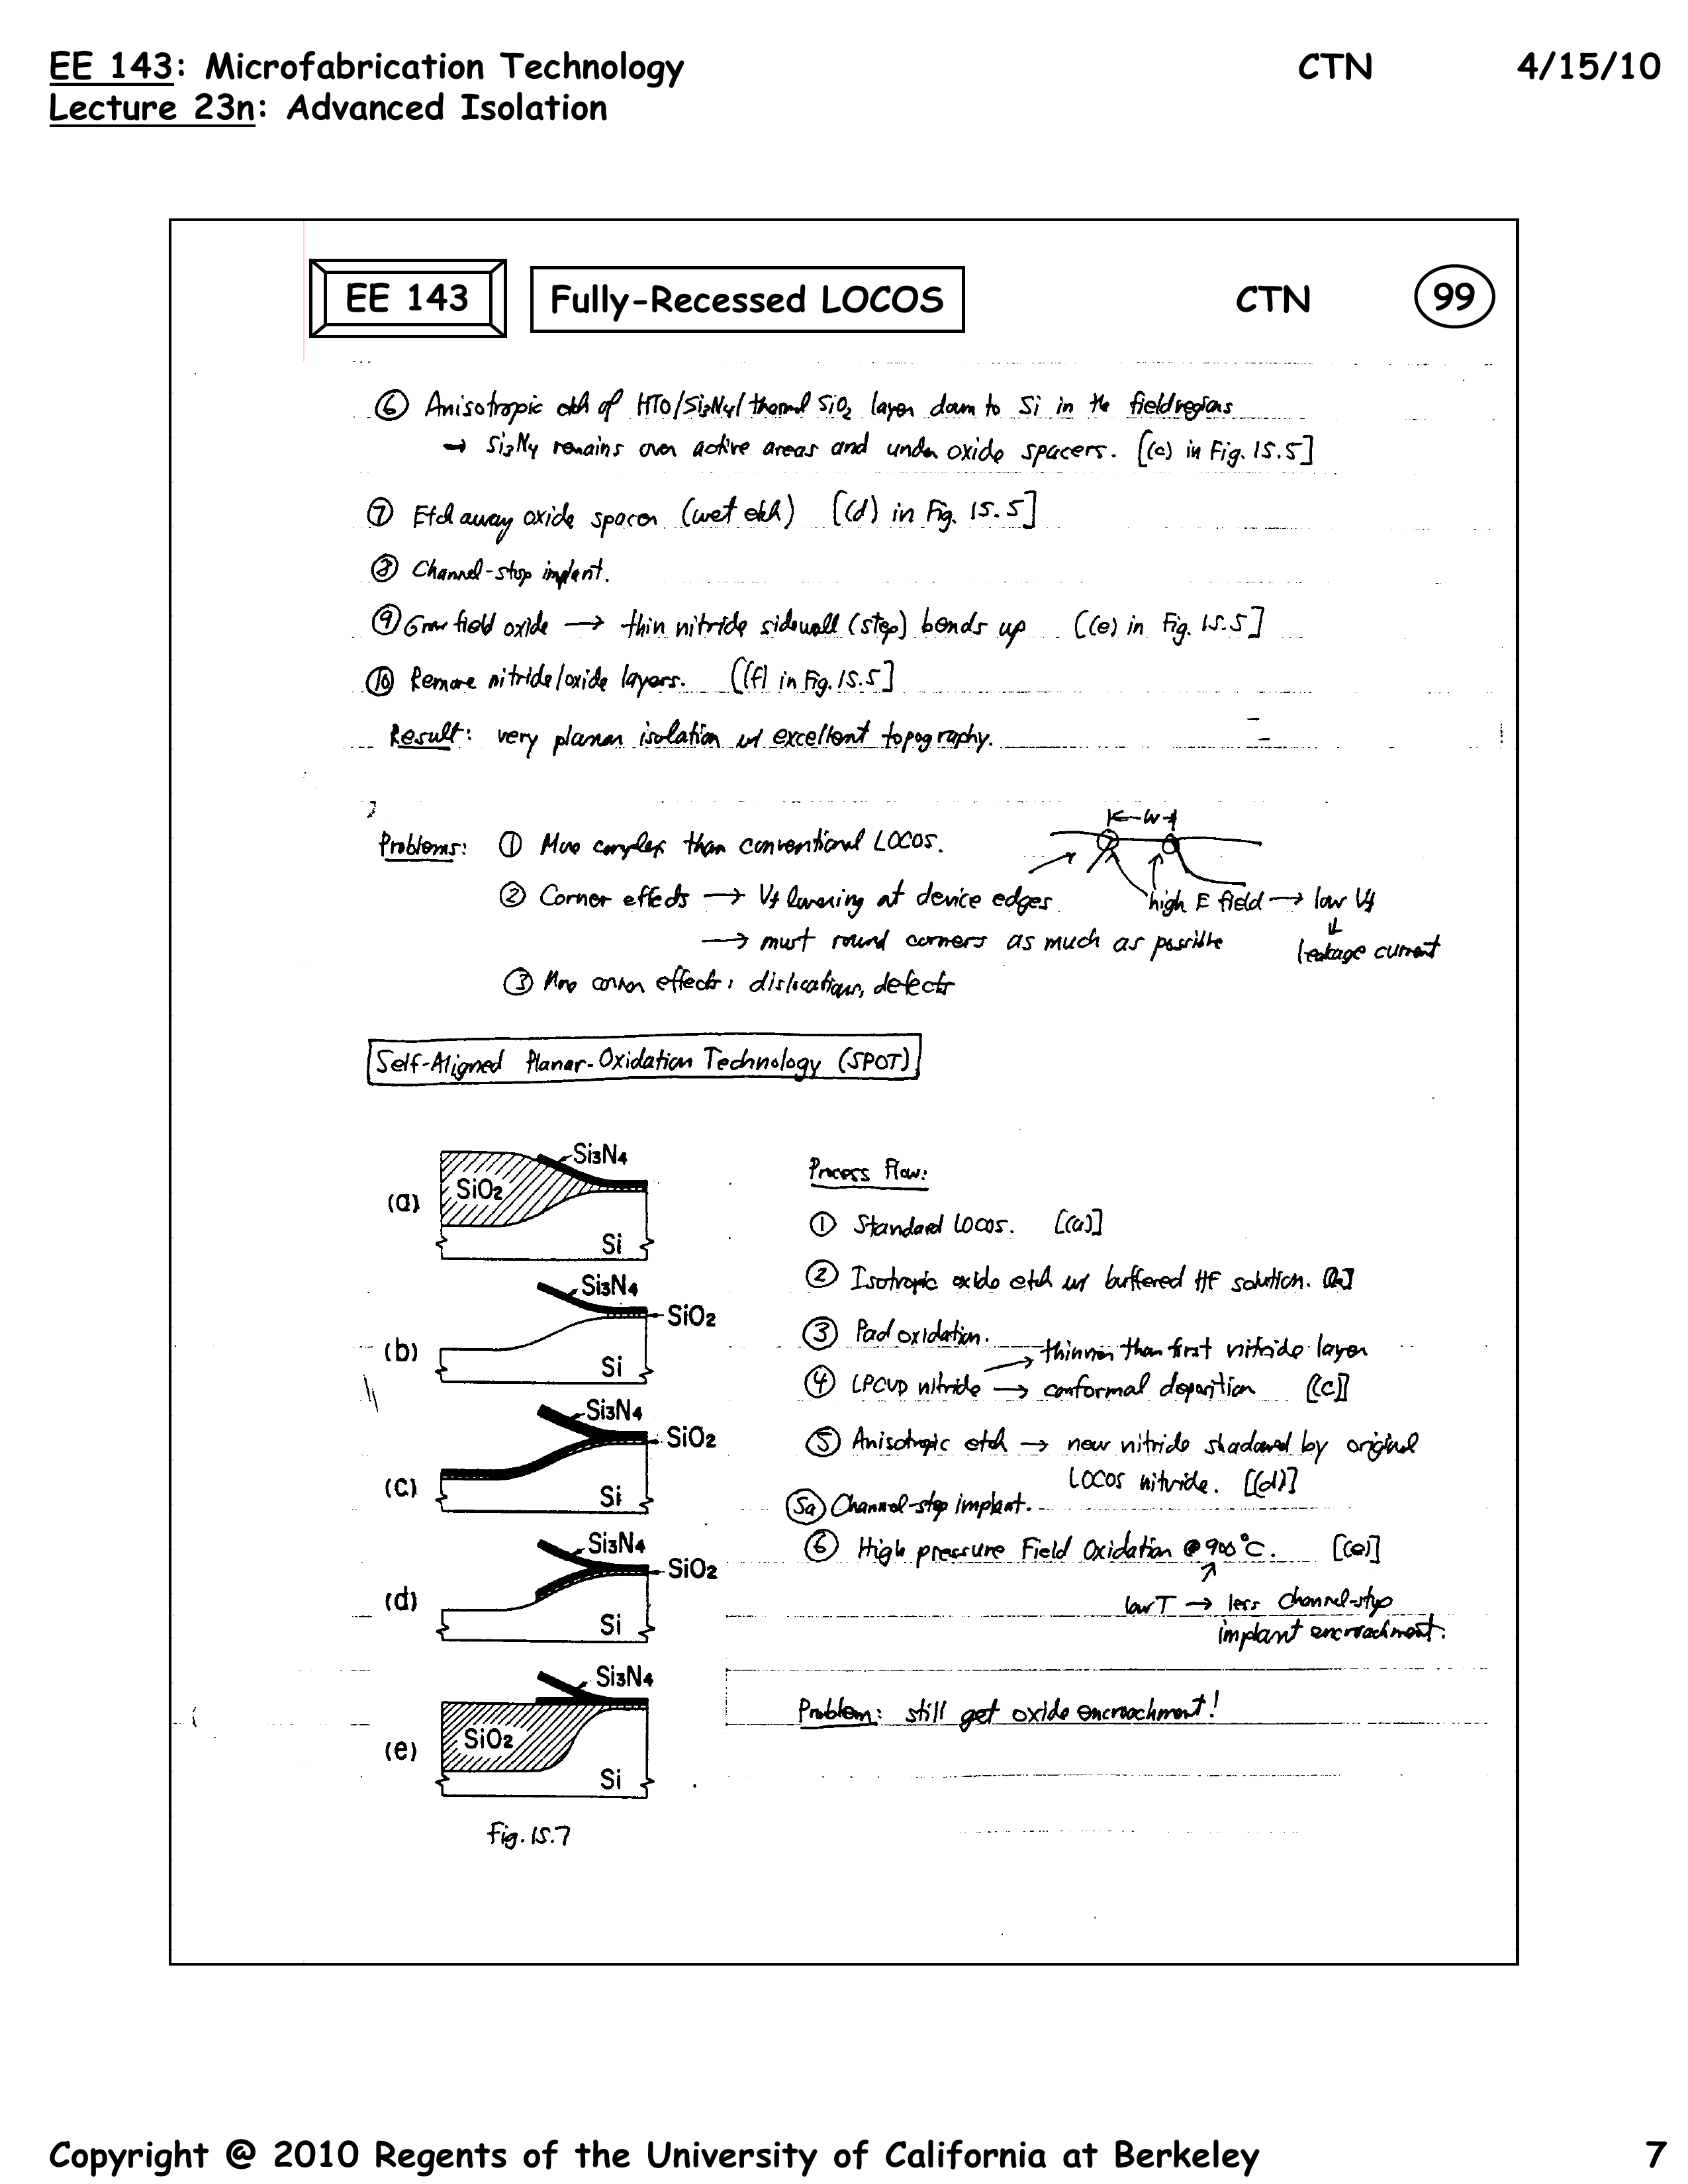 EE 143: Microfabrication Technology CTN 4/15/10
Lecture 23n: Advanced Isolation
EE 143 Fully-Recessed LOCOS CTN 99
⑥ Anisotropic etch of HTO/Si3N4/thermal SiO2 layer down to Si in the field regions
→ Si3N4 remains over active areas and under oxide spacers. [(c) in Fig. 15.5]
⑦ Etch away oxide spacer (wet etch) [(d) in Fig. 15.5]
⑧ Channel-stop implant.
⑨ Grow field oxide → thin nitride sidewall (step) bends up [(e) in Fig. 15.5]
⑩ Remove nitride/oxide layers. [(f) in Fig. 15.5]
Result: very planar isolation w/ excellent topography.
Problems: ① More complex than conventional LOCOS.
W
② Corner effects → Vt lowering at device edges
high E field → low Vt
→ must round corners as much as possible
↓
leakage current
③ More corner effects: dislocations, defects
Self-Aligned Planar-Oxidation Technology (SPOT)
(a) Si3N4 SiO2 Si
(b) Si3N4 SiO2 Si
(c) Si3N4 SiO2 Si
(d) Si3N4 SiO2 Si
(e) Si3N4 SiO2 Si
Fig. 15.7
Process Flow:
① Standard LOCOS. [(a)]
② Isotropic oxide etch w/ buffered HF solution. [b]
③ Pad oxidation.
→ thinner than first nitride layer
④ LPCVD nitride → conformal deposition [(c)]
⑤ Anisotropic etch → new nitride shadowed by original
LOCOS nitride. [(d)]
5a Channel-stop implant.
⑥ High pressure Field Oxidation @ 900°C. [(e)]
low T → less channel-stop
implant encroachment.
Problem: still get oxide encroachment!
Copyright @ 2010 Regents of the University of California at Berkeley 7